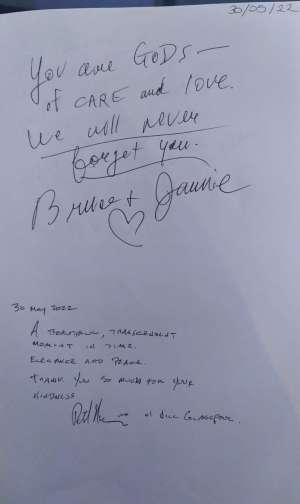 30/05/22
You are GODS —
of CARE and love.
We will never
forget you.
Bruce + Jannie
30 MAY 2022
A BEAUTIFUL, TRANSCENDENT
MOMENT IN TIME.
ELEGANCE AND PEACE.
THANK YOU SO MUCH FOR YOUR
KINDNESS